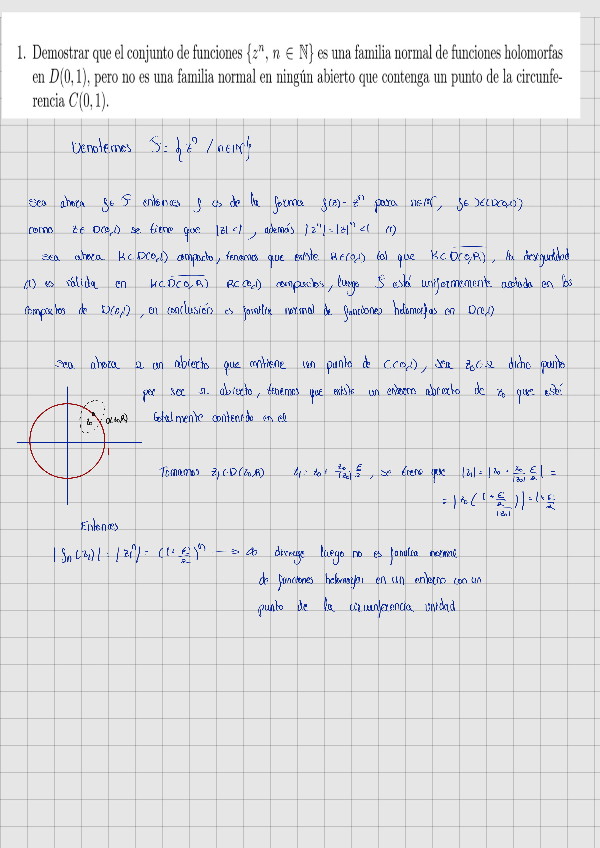 1. Demostrar que el conjunto de funciones {zⁿ, n ∈ ℕ} es una familia normal de funciones holomorfas
en D(0,1), pero no es una familia normal en ningún abierto que contenga un punto de la circunfe-
rencia C(0,1).
Denotemos F = { zⁿ / n∈ℕ }
Sea ahora f∈F entonces f es de la forma f(z) = zⁿ para n∈ℕ, f∈H(D(0,1))
como z∈D(0,1) se tiene que |z|<1, además |zⁿ|=|z|ⁿ<1 (1)
Sea ahora K⊂D(0,1) compacto, tenemos que existe R∈(0,1) tal que K⊂D(0,R), la desigualdad
(1) es válida en K⊂D(0,R) ⊂D(0,1) compactos, luego F está uniformemente acotada en los
compactos de D(0,1), en conclusión es familia normal de funciones holomorfas en D(0,1)
Sea ahora Ω un abierto que contiene un punto de C(0,1), sea z₀∈Ω dicho punto
por ser Ω abierto, tenemos que existe un entorno abierto de z₀ que está
totalmente contenido en él
z₀ D(z₀,R)
1
Tomamos z₁∈D(z₀,R) z₁ = z₀ + z₀/|z₀| ε/2, se tiene que |z₁| = |z₀ + z₀/|z₀| ε/2| =
= |z₀(1 + ε/2 /|z₀|)| = 1+ε/2
Entonces
|fₙ(z₁)| = |z₁ⁿ| = (1+ε/2)ⁿ → ∞ diverge luego no es familia normal
de funciones holomorfas en un entorno con un
punto de la circunferencia unidad